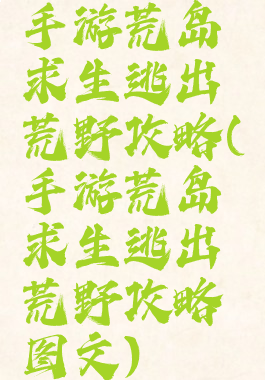 手游荒岛
求生逃出
荒野攻略(
手游荒岛
求生逃出
荒野攻略
图文)